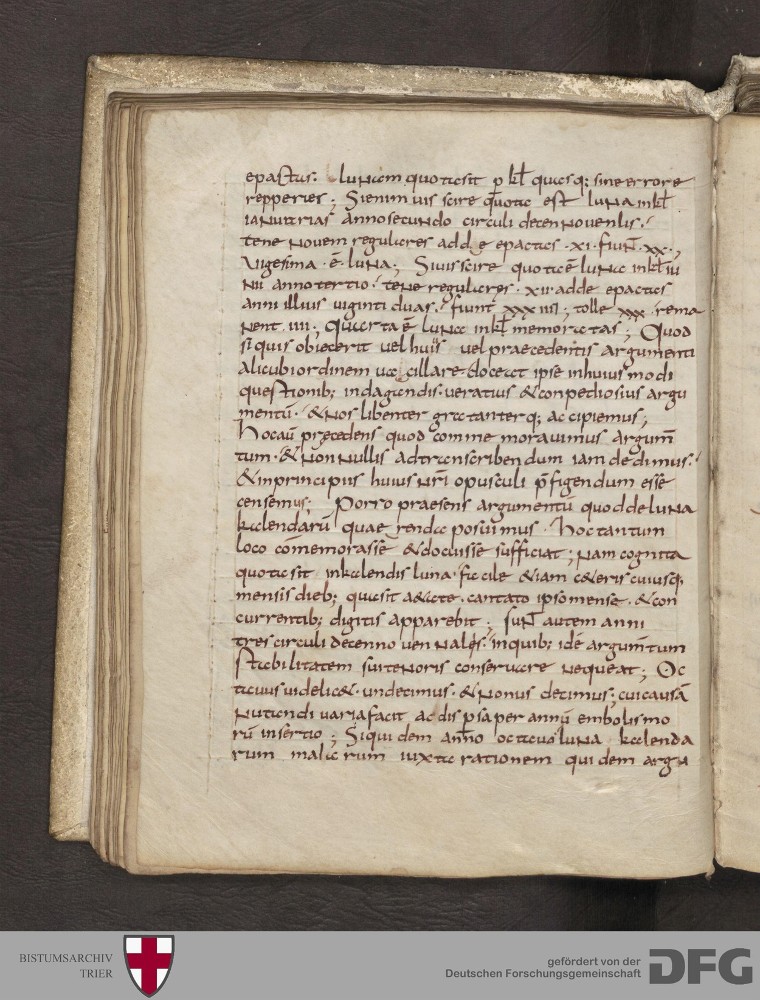 epactas. lunam quota sit p kl quasq; sine errore
repperies; Si enim uis scire quotae est luna in kl
ianuarias anno secundo circuli decennouenlis.
tene novem regulares adde epactas .xi. fiunt .xx.,
vigesima .ē. luna; Si uis scire quota ē luna in kl iu
nii anno tertio. tene regulares .xii. adde epactas
anni illius uiginti duas. fiunt xxxiiii; tolle xxx. rema
nent iiii; Quarta ē luna in kl memoratas; Quod
si quis obiecerit uel huius uel praecedentis argumenti
alicubi ordinem uacillare. doceat ipse in huiusmodi
questionib; indagandis. ueratius & conpediosius argu
mentū. & nos libenter gratanterq; accipiemus;
hoc aū precedens quod commemorauimus argum̄
tum. & non nullis ad transcribendum iam dedimus.
& in principiis huius nr̄i opusculi p̄figendum esse
censemus; Porro praesens argumentū quod de luna
kalendarū quaerenda posuimus. hoc tantum
loco cōmemorasse & docuisse sufficiat; nam cognita
quota sit in kalendis luna. facile &iam c&eris cuiusq;
mensis dieb; quae sit a&ate. cantato ipso mense. & con
currentib; digitis apparebit; sun̄t autem anni
tres circuli decennouennales. in quib; idē argum̄tum
stabilitatem sui tenoris conseruare nequeat; Oc
tauus uidelic&. undecimus. & nonus decimus; cui causā
nutandi uaria facit ac dispersa per annū embolismo
rū insertio; Siquidem anno octauo luna kalenda
rum maiarum iuxta rationem quidem argu
BISTUMSARCHIV
TRIER
gefördert von der
Deutschen Forschungsgemeinschaft
DFG